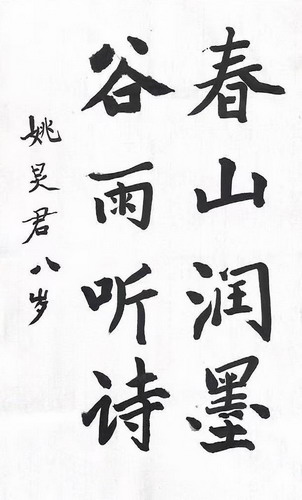 春山润墨
谷雨听诗
姚昊君八岁